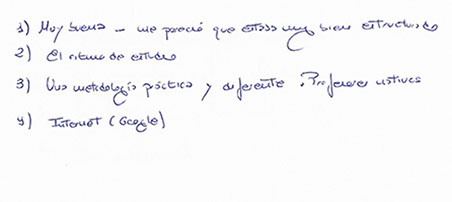 1) Muy buena - me pareció que estaba muy bien estructurado
2) El ritmo de estudio
3) Una metodología práctica y diferente. Profesores nativos
4) Internet (Google)